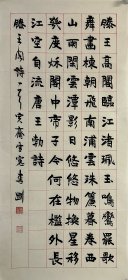 滕王高閣臨江渚珮玉鳴鸞罷歌
舞畫棟朝飛南浦雲珠簾暮卷西
山雨閑雲潭影日悠悠物換星移
幾度秋閣中帝子今何在檻外長
江空自流唐王勃詩
滕王阁詩一首